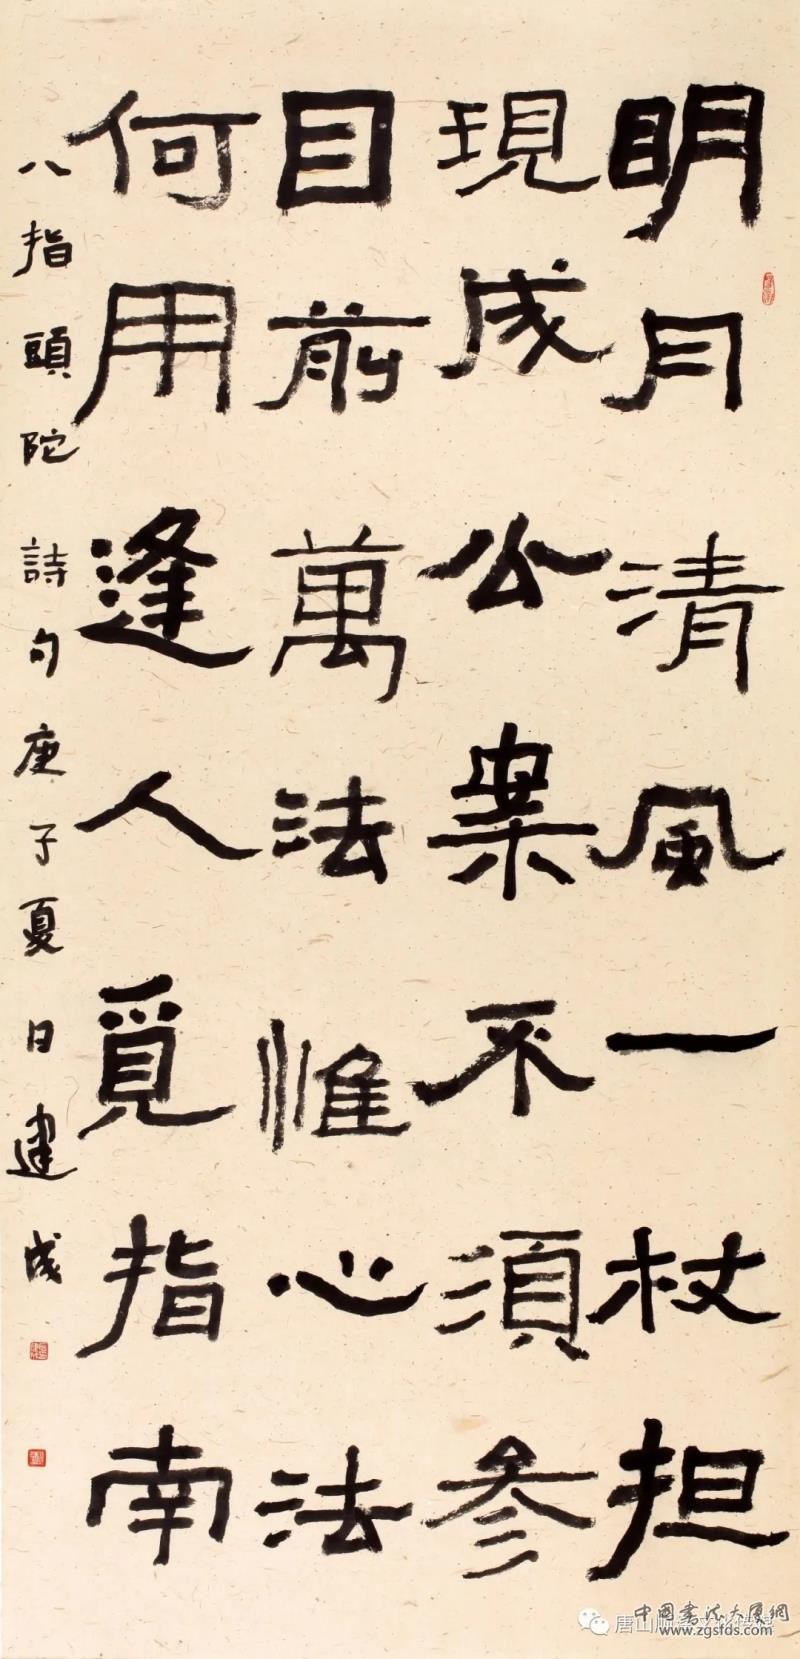 明月清風一杖担
現成公案不須参
目前萬法惟心法
何用逢人覓指南
八指頭陀詩句庚子夏日建成
中國書法大厦網
www.zgsfds.com